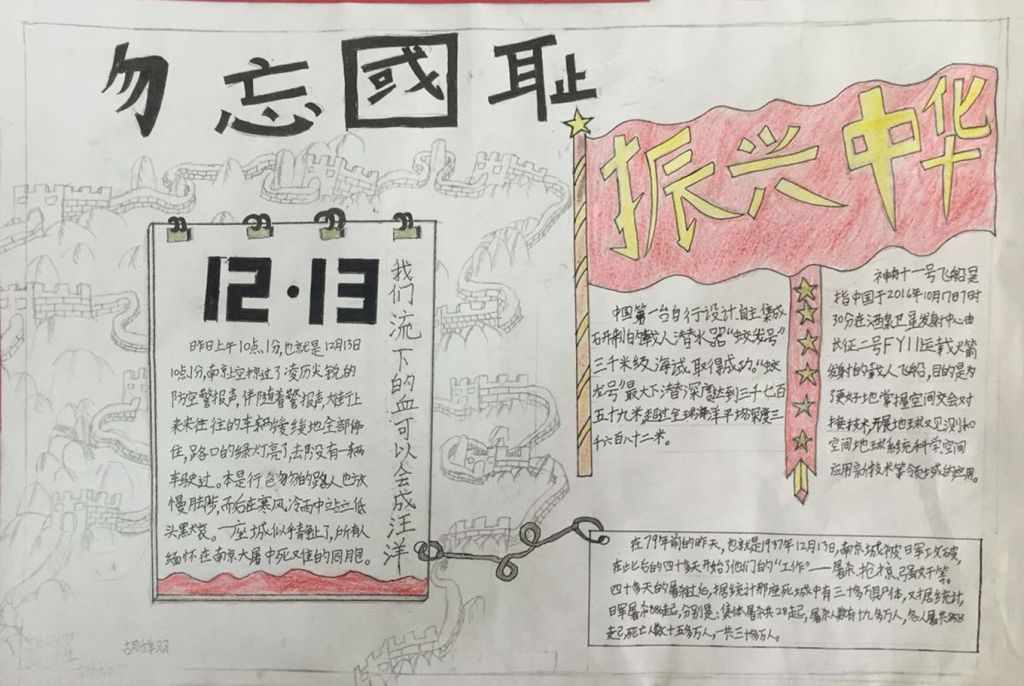 勿忘國耻
振兴中华
12·13
我们流下的血可以会成汪洋
昨日上午10点1分,也就是12月13日
10点1分,南京上空掠过了凌厉尖锐的
防空警报声,伴随着警报声大街上
来来往往的车辆缓缓地全部停
住,路口的绿灯亮了,却没有一辆
车驶过。本是行色匆匆的路人也放
慢脚步,而后在寒风冷雨中站立低
头默哀。一座城似乎静止了,所有人
缅怀在南京大屠中死又住的同胞。
中国第一台自行设计自主集成
研制的载人潜水器“蛟龙号”
三千米级海试取得成功。“蛟
龙号”最大下潜深度达到三千七百
五十九米,超过全球海洋平均深度三
千六百八十二米。
神舟十一号飞船是
指中国于2016年10月17日7时
30分在酒泉卫星发射中心由
长征二号FY11运载火箭
发射的载人飞船,目的是为
更好地掌握空间交会对
接技术,开展地球观测和
空间地球系统科学空间
应用新技术等领域的应用。
在79年前的昨天,也就是1937年12月13日,南京城被日军攻破,
在此后的四十多天开始了他们的“工作”——屠杀、抢掠、强奸等。
四十多天的屠杀过后,据统计那座死城中有三十多万具尸体,又据统计,
日军屠杀886起,分别是:集体屠杀共28起,屠杀人数有十九多万人,
起,死亡人数十五多万人,一共三十多万人。